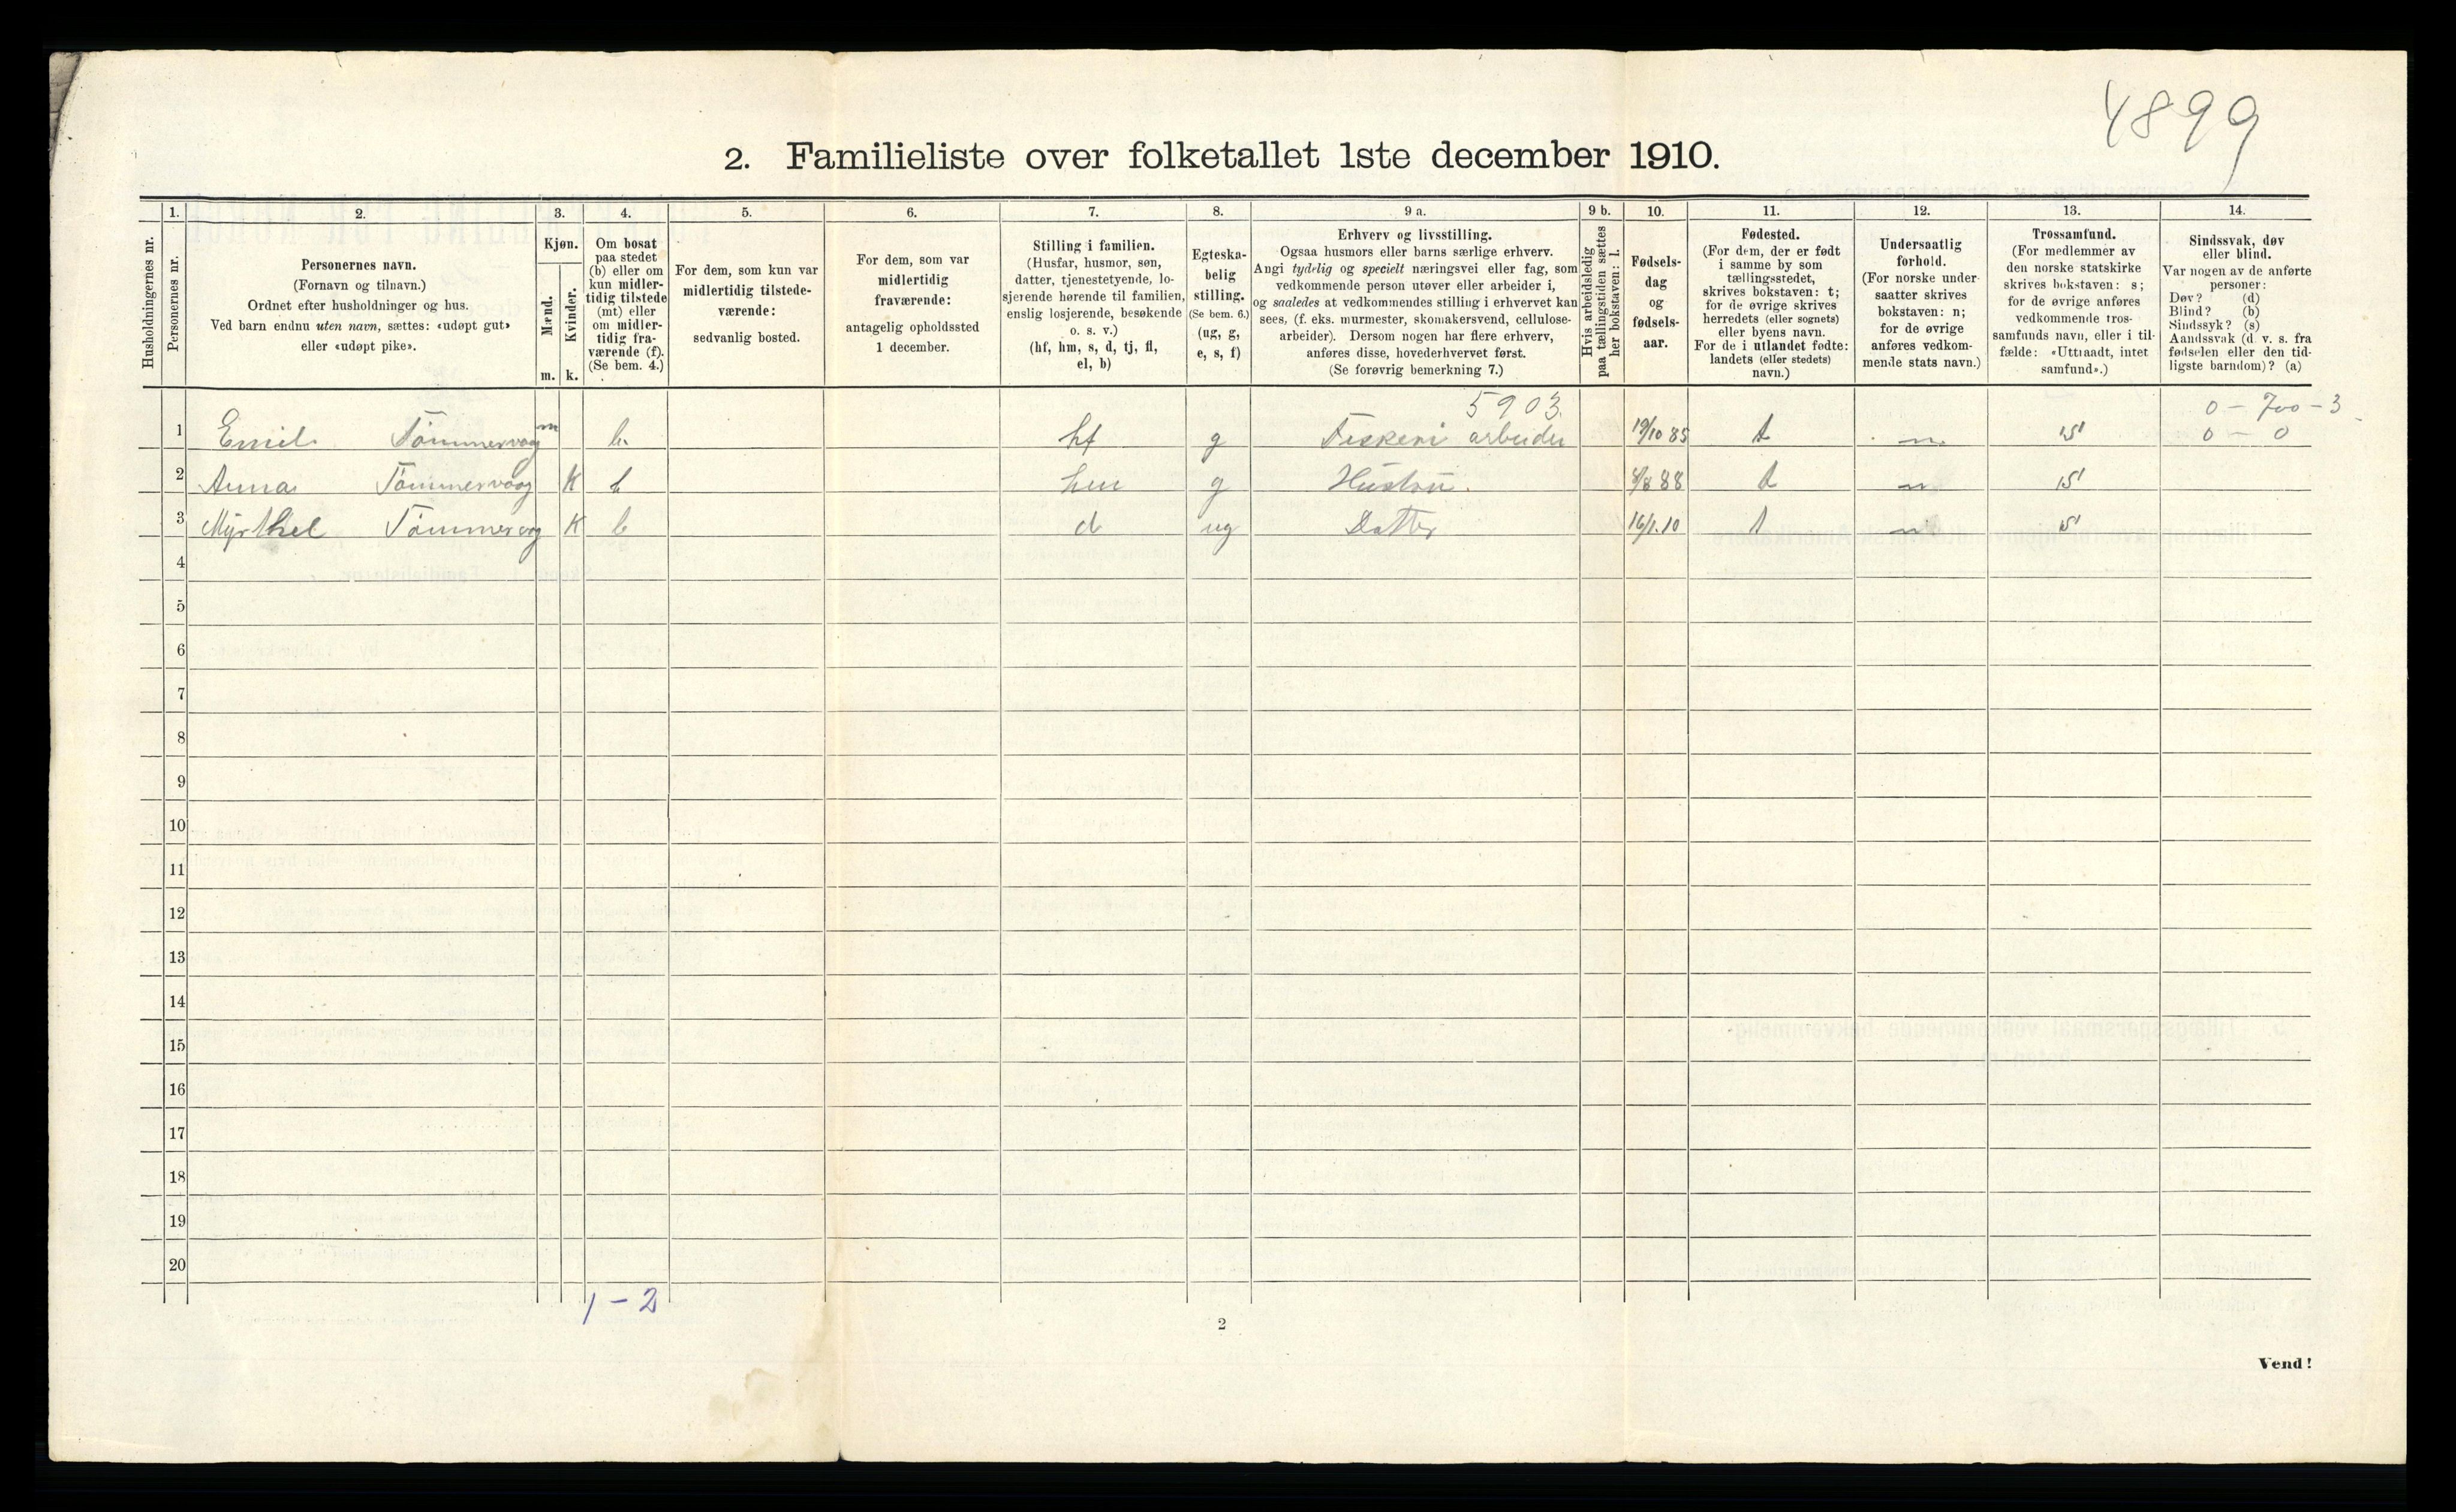 4899
2. Familieliste over folketallet 1ste december 1910.
Husholdningernes nr.
1.
Personernes nr.
2.
Personernes navn.
(Fornavn og tilnavn.)
Ordnet efter husholdninger og hus.
Ved barn endnu uten navn, sættes: «udøpt gut»
eller «udøpt pike».
3.
Kjøn.
Mænd.
Kvinder.
m. k.
4.
Om bosat
paa stedet
(b) eller om
kun midler-
tidig tilstede
(mt) eller
om midler-
tidig fra-
værende (f).
(Se bem. 4.)
5.
For dem, som kun var
midlertidig tilstede-
værende:
sedvanlig bosted.
6.
For dem, som var
midlertidig
fraværende:
antagelig opholdssted
1 december.
7.
Stilling i familien.
(Husfar, husmor, søn,
datter, tjenestetyende, lo-
sjerende hørende til familien,
enslig losjerende, besøkende
o. s. v.)
(hf, hm, s, d, tj, fl,
el, b)
8.
Egteska-
belig
stilling.
(Se bem. 6.)
(ug, g,
e, s, f)
9 a.
Erhverv og livsstilling.
Ogsaa husmors eller barns særlige erhverv.
Angi tydelig og specielt næringsvei eller fag, som
vedkommende person utøver eller arbeider i,
og saaledes at vedkommendes stilling i erhvervet kan
sees, (f. eks. murmester, skomakersvend, cellulose-
arbeider). Dersom nogen har flere erhverv,
anføres disse, hovederhvervet først.
(Se forøvrig bemerkning 7.)
9 b.
Hvis arbeidsledig
paa tællingstiden sættes
her bokstaven: l.
10.
Fødsels-
dag
og
fødsels-
aar.
11.
Fødested.
(For dem, der er født
i samme by som
tællingsstedet,
skrives bokstaven: t;
for de øvrige skrives
herredets (eller sognets)
eller byens navn.
For de i utlandet fødte:
landets (eller stedets)
navn.)
12.
Undersaatlig
forhold.
(For norske under-
saatter skrives
bokstaven: n;
for de øvrige
anføres vedkom-
mende stats navn.)
13.
Trossamfund.
(For medlemmer av
den norske statskirke
skrives bokstaven: s;
for de øvrige anføres
vedkommende tros-
samfunds navn, eller i til-
fælde: «Uttraadt, intet
samfund».)
14.
Sindssvak, døv
eller blind.
Var nogen av de anførte
personer:
Døv? (d)
Blind? (b)
Sindssyk? (s)
Aandssvak (d. v. s. fra
fødselen eller den tid-
ligste barndom)? (a)
5903. 0 - 700 - 3
1 Emil Tømmervaag m b. hf g Fiskeri arbeider 19/10 85 t n s 0 - 0
2 Anna Tømmervaag K b hm g Hustru. 88 t n s
3 Myrthel K b d ug Datter 16/1.10 t n s
4
5
6
7
8
9
10
11
12
13
14
15
16
17
18
19
20
1 - 2
2
Vend!